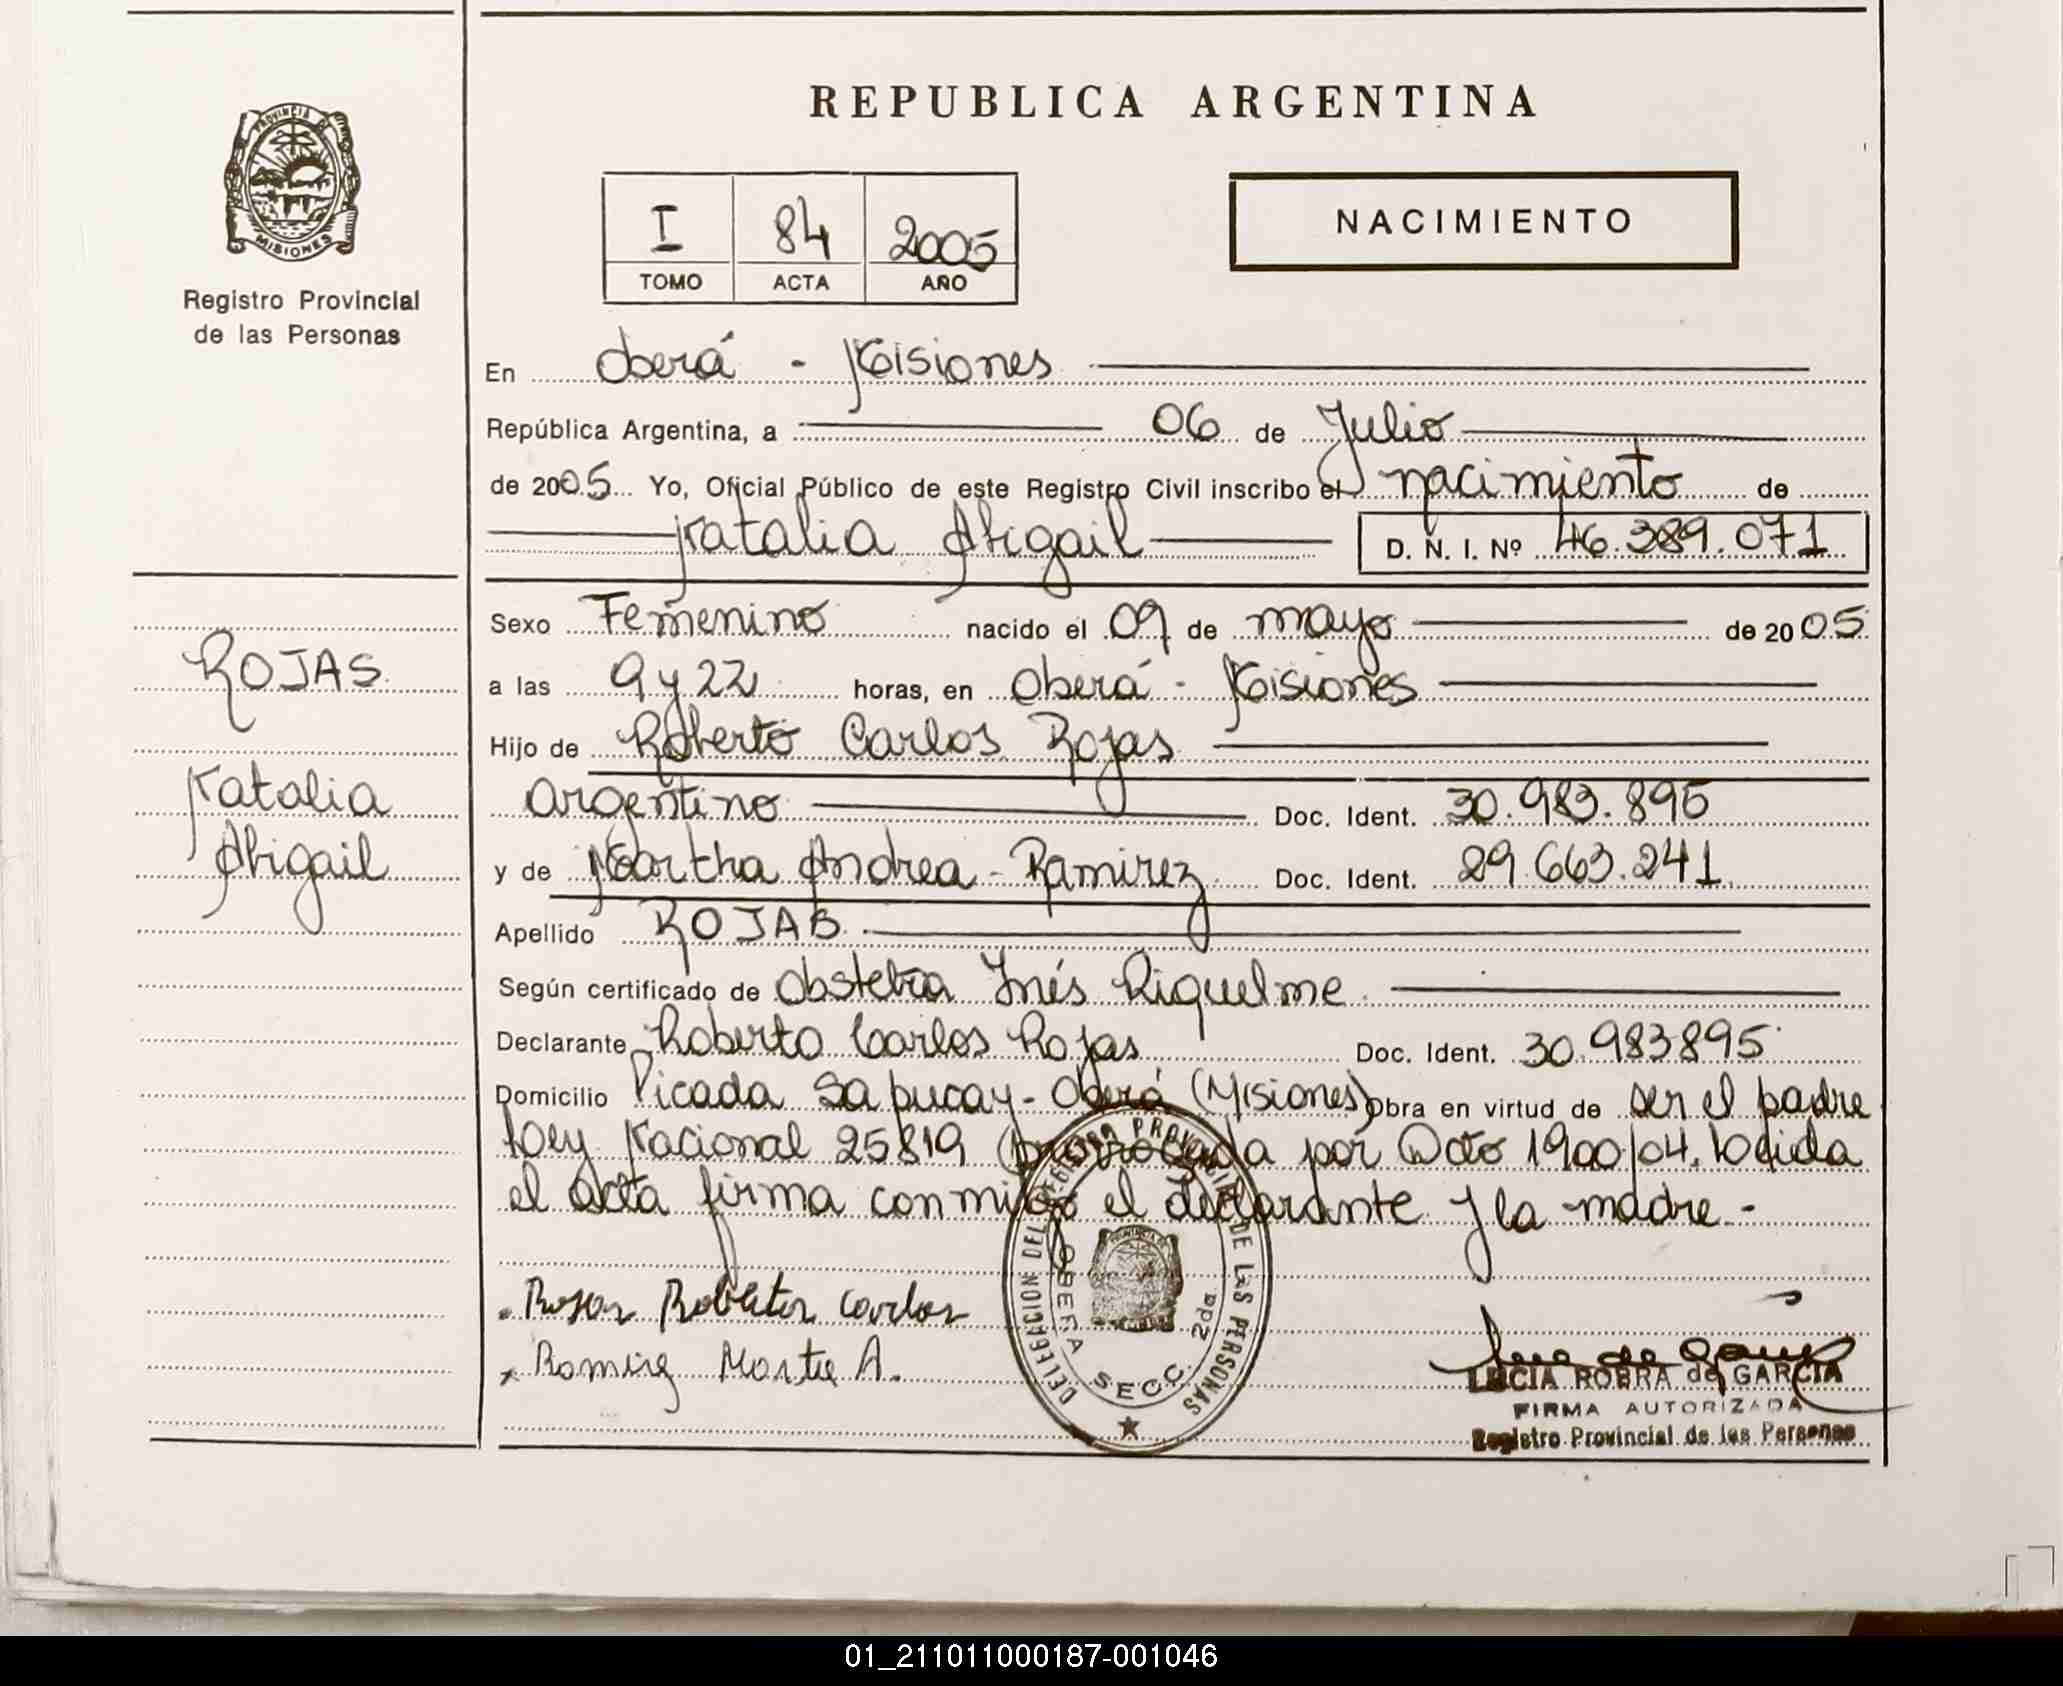 REPUBLICA ARGENTINA
PROVINCIA DE
MISIONES
Registro Provincial
de las Personas
I 84 2005
TOMO ACTA AÑO
NACIMIENTO
En Oberá - Misiones
República Argentina, a 06 de Julio
de 2005 Yo, Oficial Público de este Registro Civil inscribo el nacimiento de
Natalia Abigail D. N. I. Nº 46.389.071
ROJAS
Natalia
Abigail
Sexo Femenino nacido el 09 de mayo de 2005
a las 9 y 22 horas, en Oberá - Misiones
Hijo de Roberto Carlos Rojas
Argentino Doc. Ident. 30.983.895
y de Martha Andrea - Ramirez Doc. Ident. 29.663.241
Apellido ROJAS
Según certificado de Obstetra Inés Riquelme
Declarante Roberto Carlos Rojas Doc. Ident. 30.983895
Domicilio Picada Sapucay - Oberá (Misiones) Obra en virtud de ser el padre
Ley Nacional 25819 (prorrogada por Dcto 1900/04. Leida
el acta firma conmigo el declarante y la madre -
Rojas Roberto Carlos
Ramirez Marta A.
DELEGACION DEL REGISTRO PROVINCIAL DE LAS PERSONAS
OBERA SECC. 2da
LUCIA ROBRA de GARCIA
FIRMA AUTORIZADA
Registro Provincial de las Personas
01_211011000187-001046